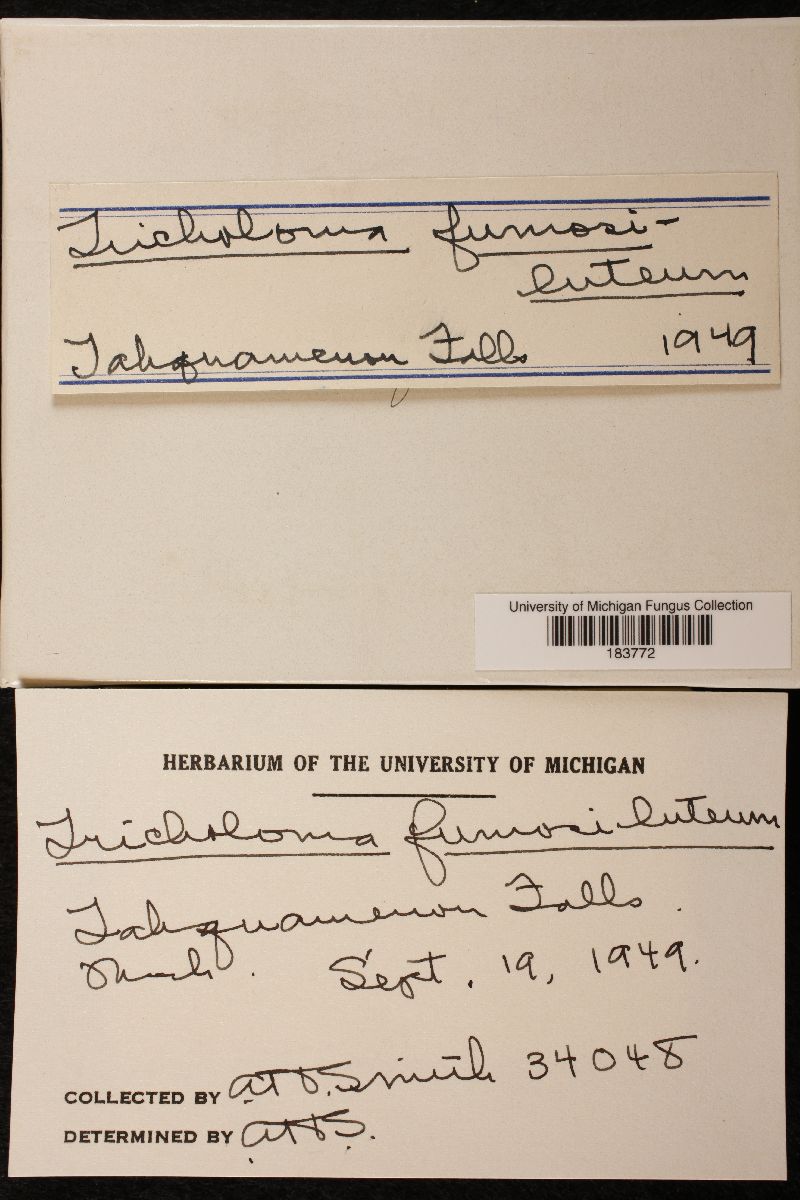 Tricholoma fumosi-
luteum
Tahquamenon Falls 1949
University of Michigan Fungus Collection
183772
HERBARIUM OF THE UNIVERSITY OF MICHIGAN
Tricholoma fumosi-luteum
Tahquamenon Falls.
Mich. Sept. 19, 1949.
COLLECTED BY A H Smith 34048
DETERMINED BY AHS.